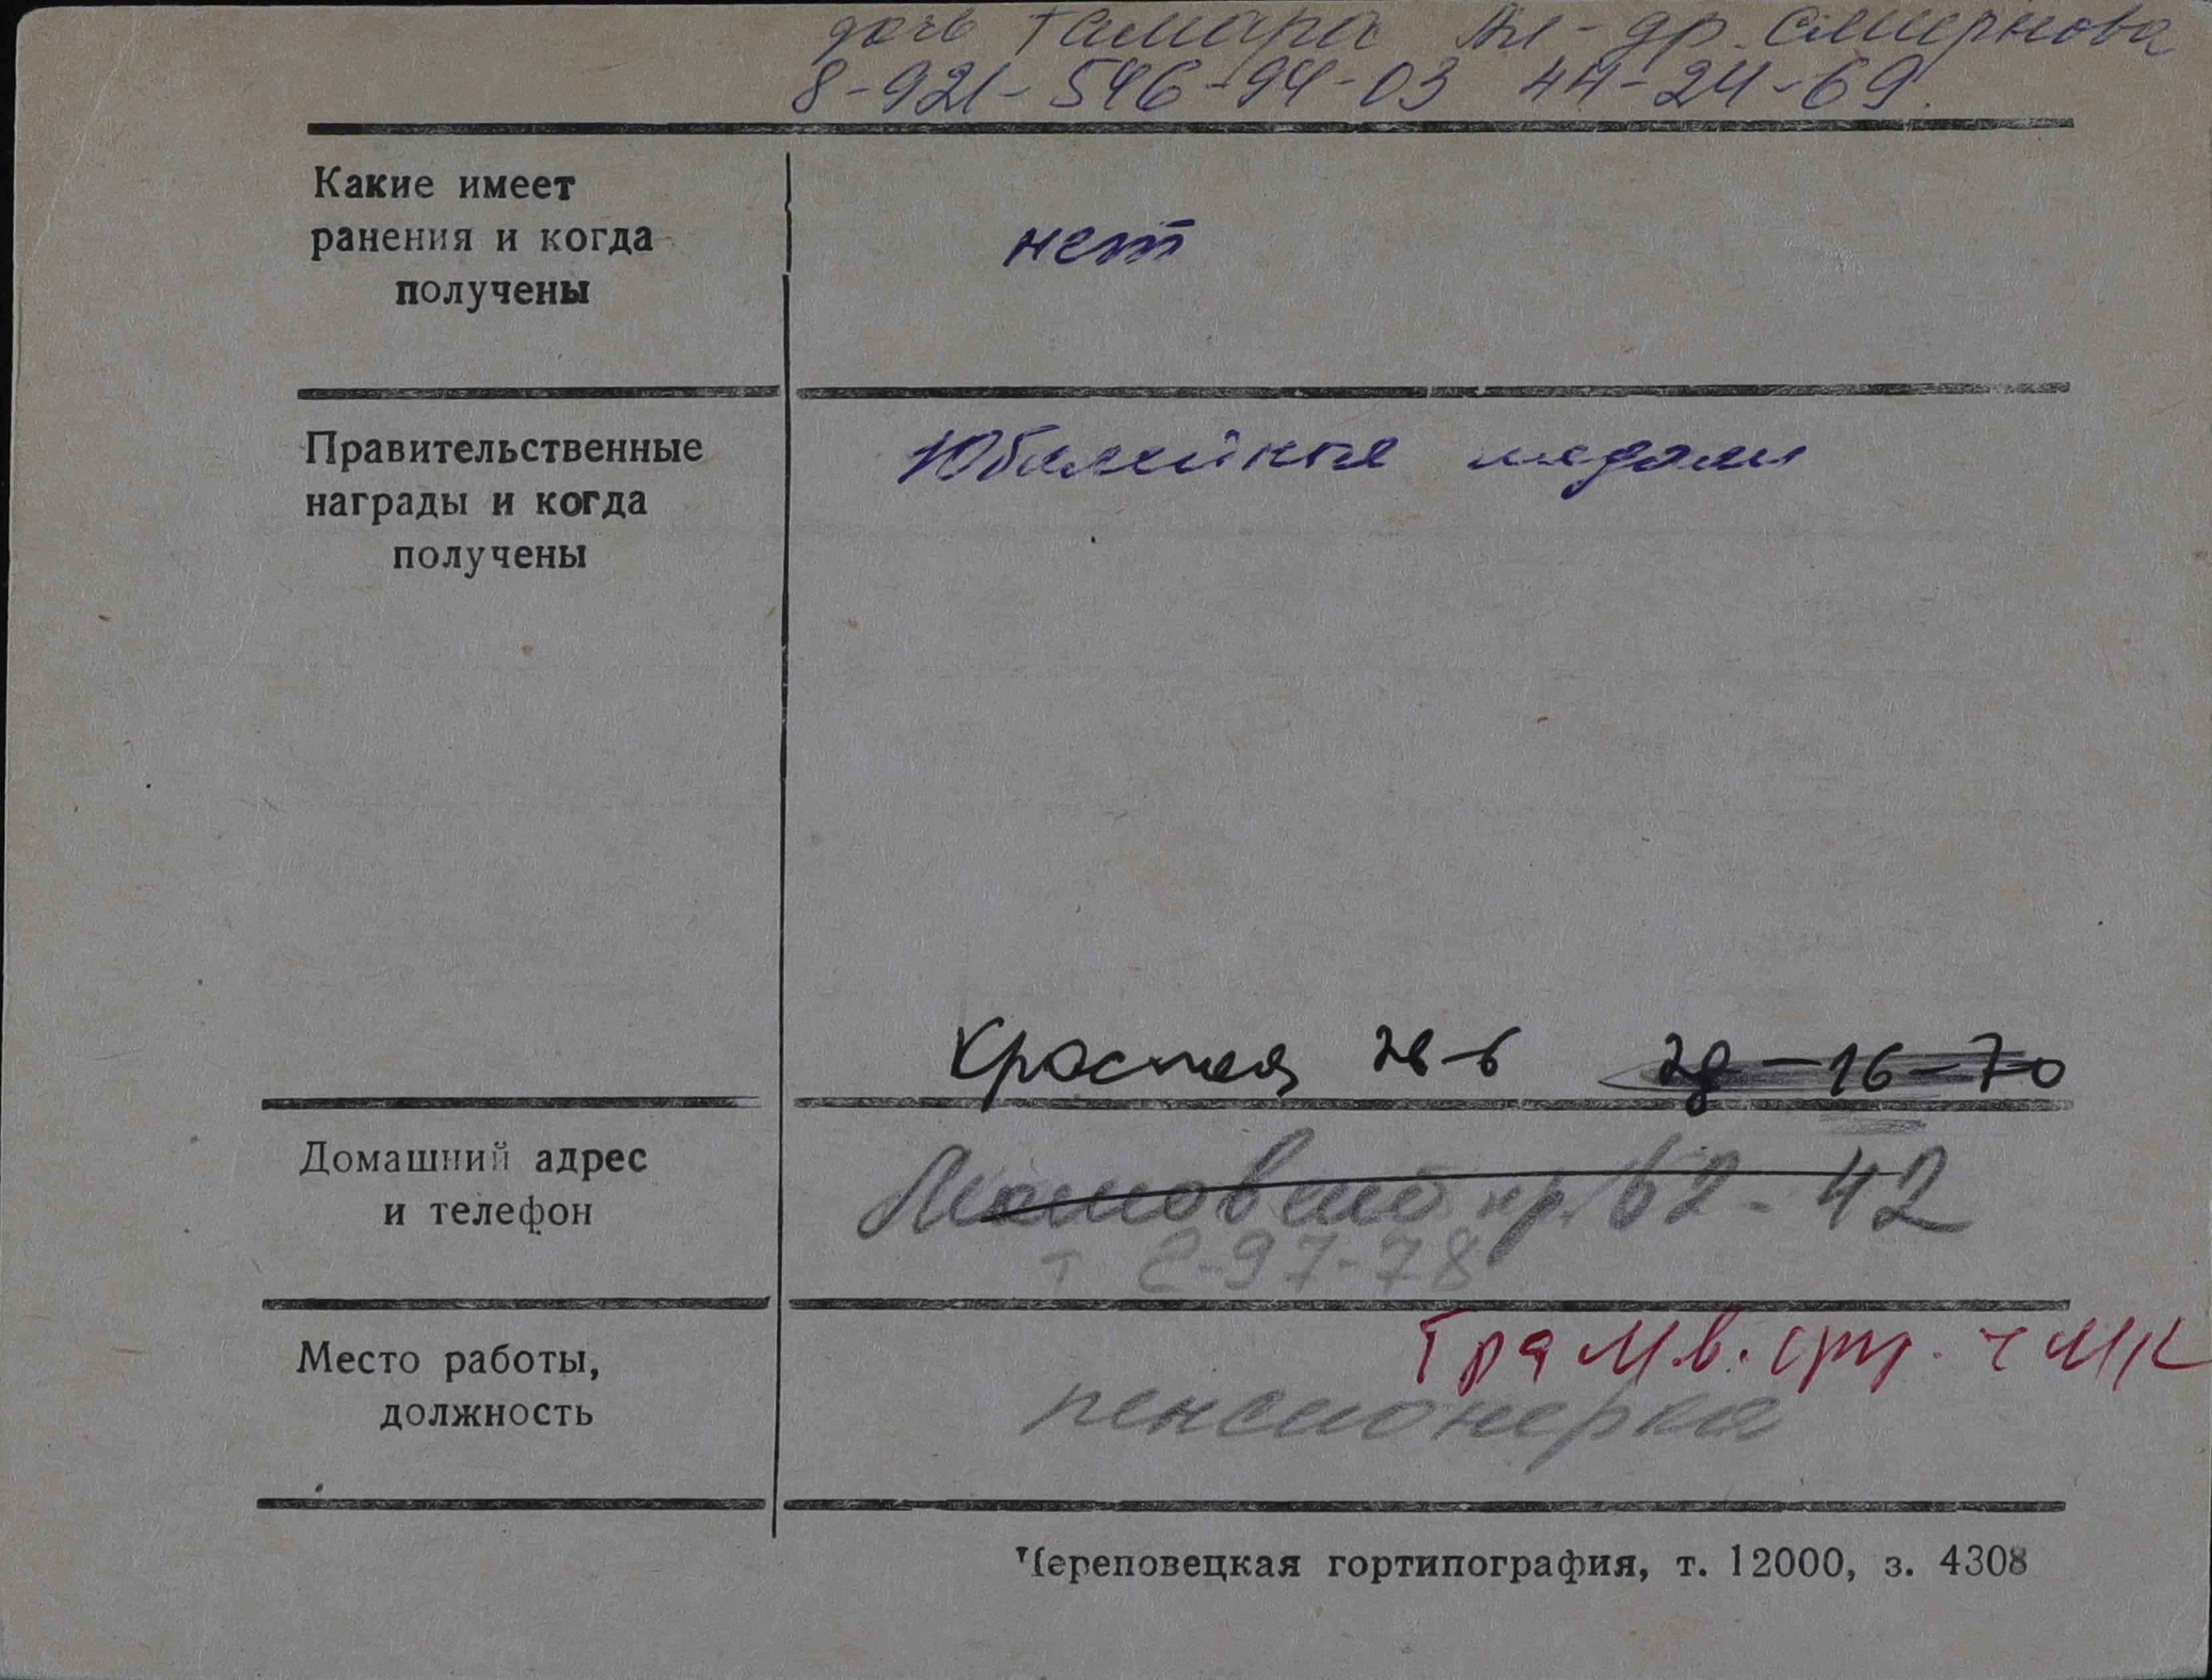 дочь Тамара Ал-др. Смирнова
8-921-546-94-03 44-24-69.
Какие имеет
ранения и когда
получены
нет
Правительственные
награды и когда
получены
Юбилейные медали
Красная 26-6 28-16-70
Домашний адрес
и телефон
пр. 62-42
т 2-97-78
Место работы,
должность
Трамв. ЧМК
пенсионерка
Череповецкая гортипография, т. 12000, з. 4308